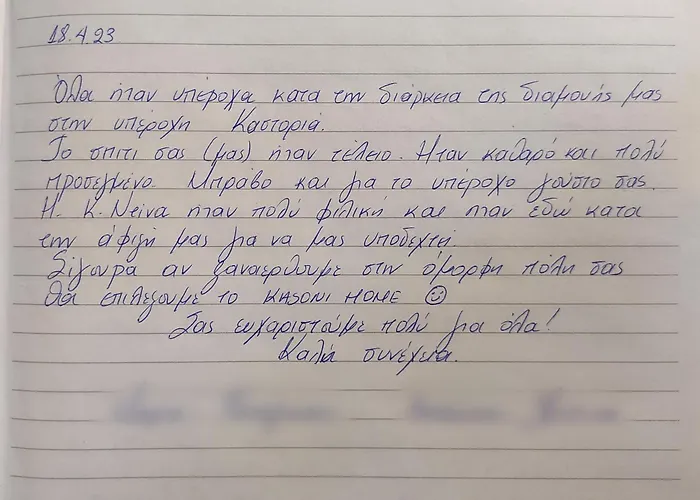 18.4.23
Όλα ήταν υπέροχα κατα την διάρκεια της διαμονής μας
στην υπέροχη Καστοριά.
Το σπιτι σας (μας) ήταν τέλειο. Ήταν καθαρό και πολύ
προσεγμένο. Μπράβο και για το υπέροχο γούστο σας.
Η κ. Νείνα ήταν πολύ φιλική και ήταν εδώ κατα
την άφιξή μας για να μας υποδεχτή.
Σίγουρα αν ξαναερθουμε στην όμορφη πόλη σας
θα επιλέξουμε το KASONI HOME ☺
Σας ευχαριστούμε πολύ για όλα!
Καλή συνέχεια.